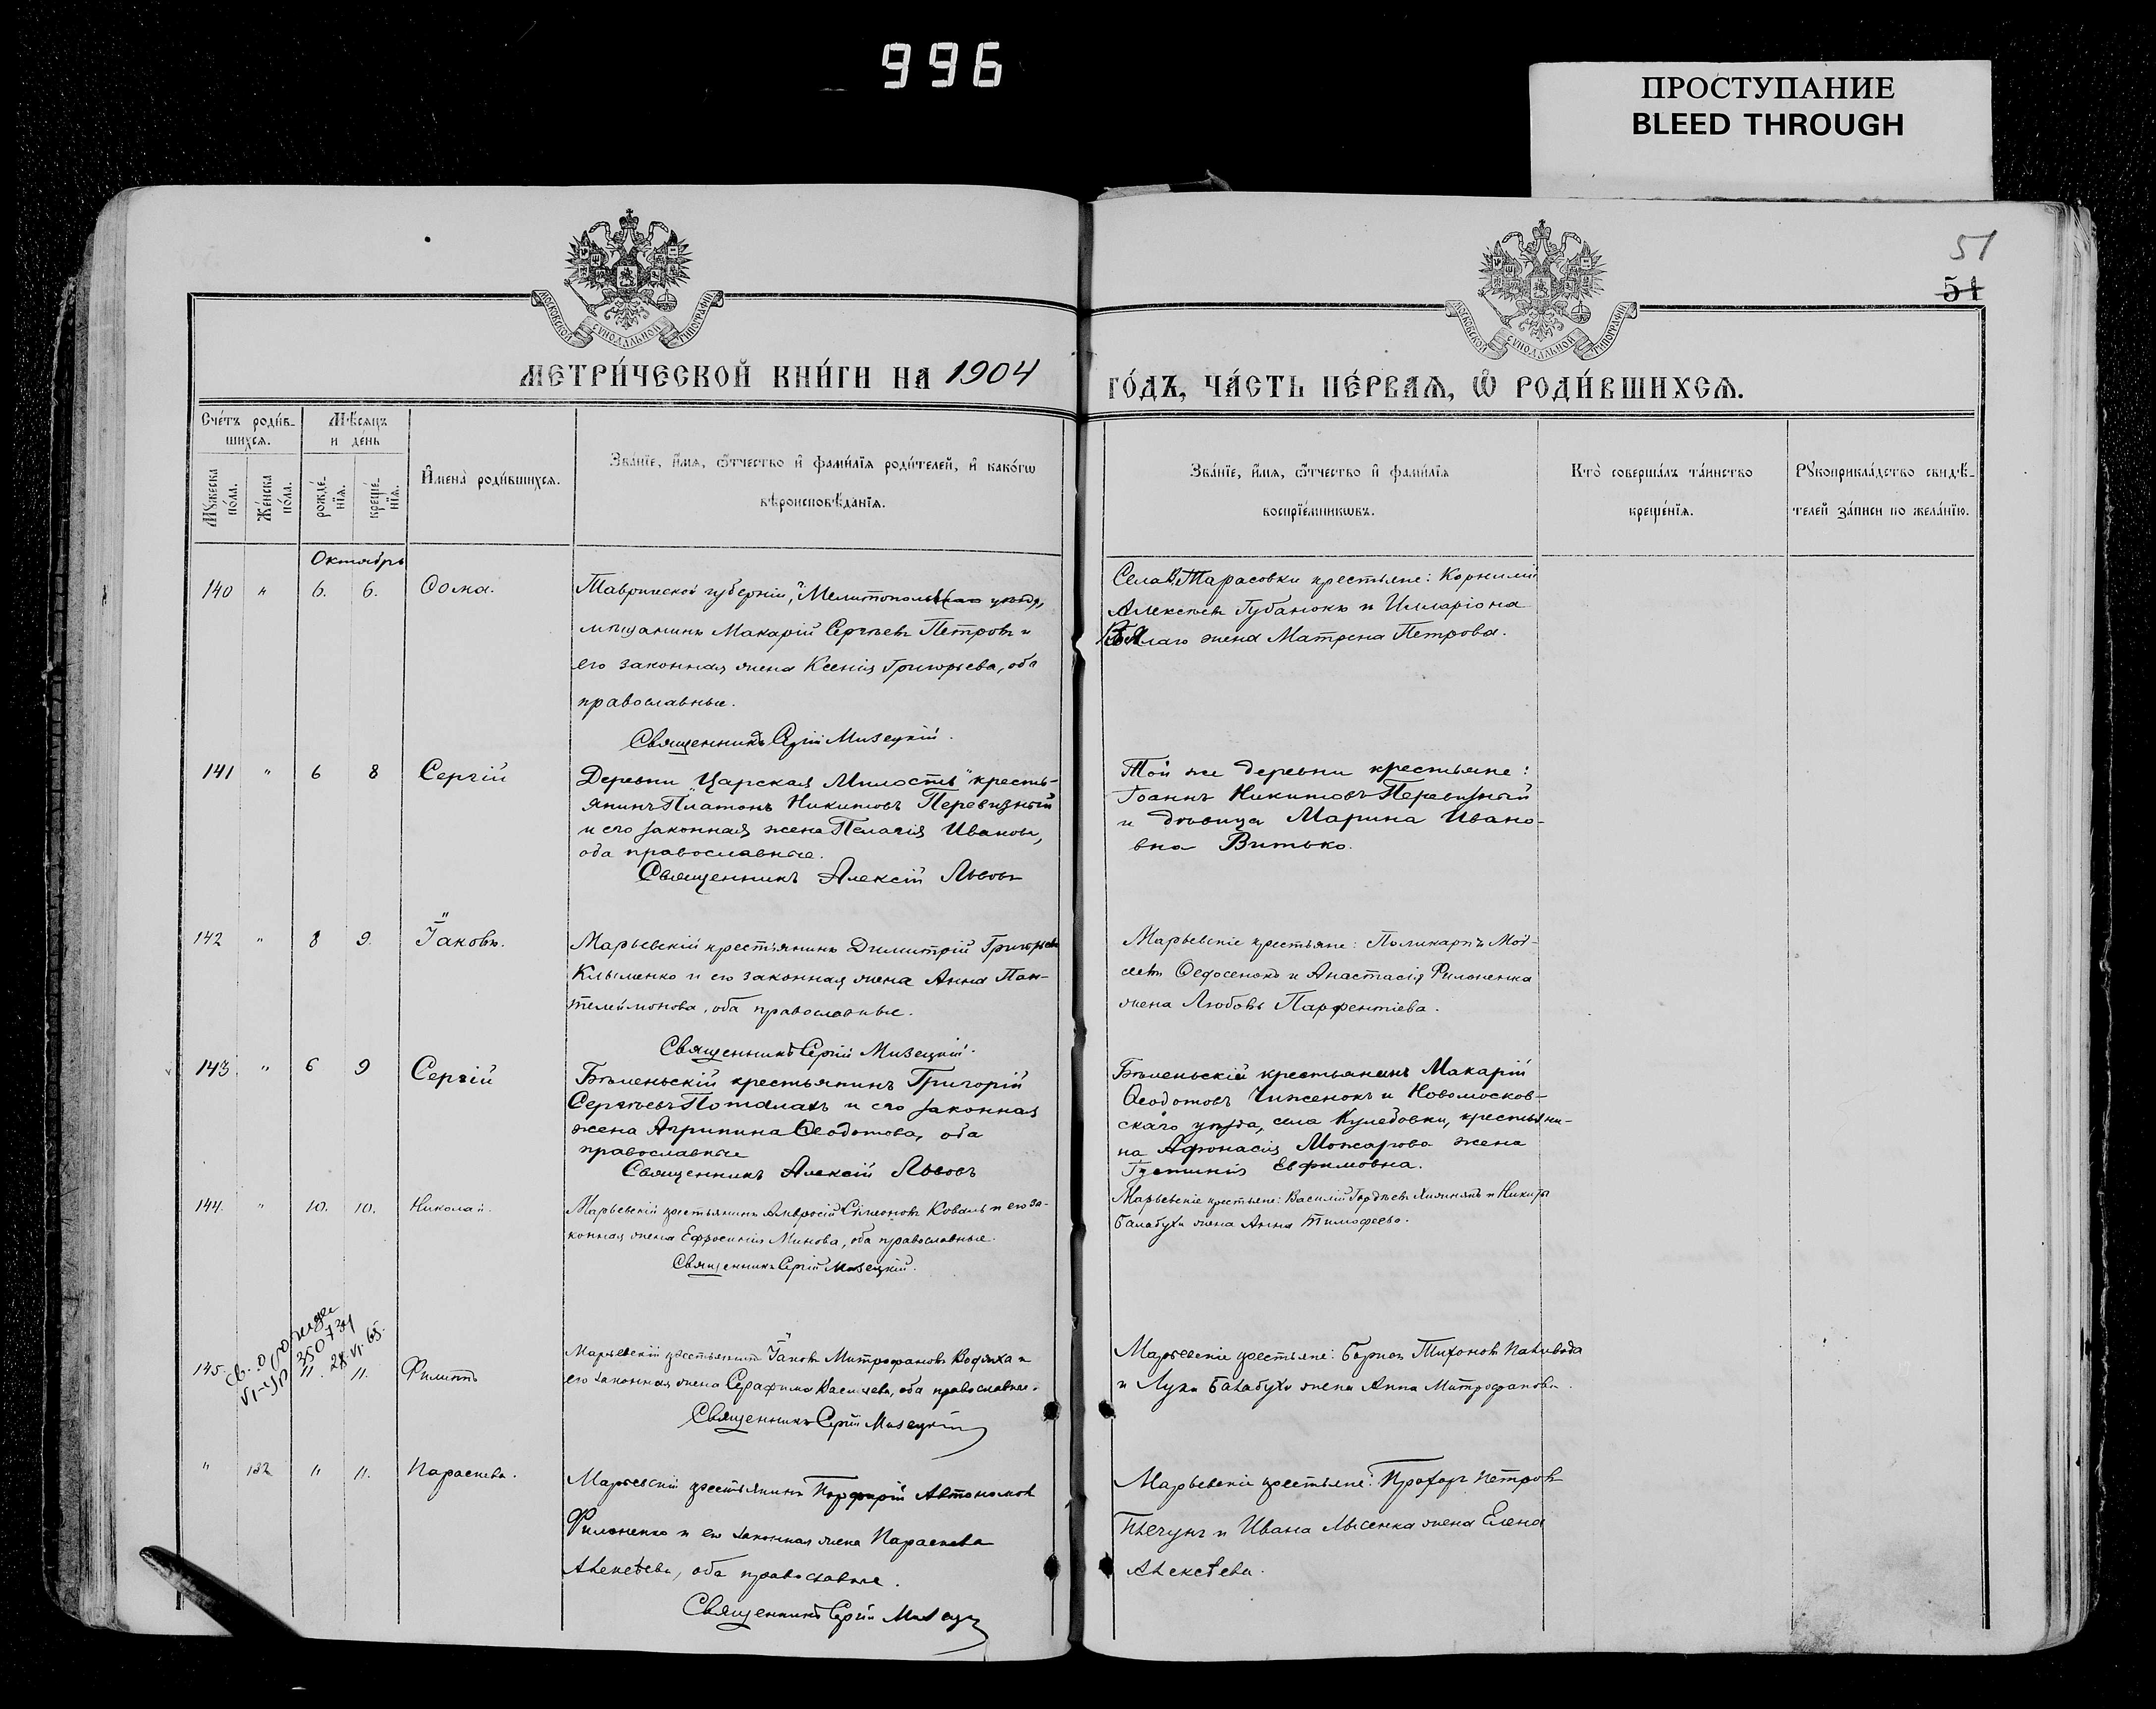 996
ПРОСТУПАНИЕ
BLEED THROUGH
51
51
МОСКОВСКОЙ СѴНОДАЛЬНОЙ ТИПОГРАФІИ
МОСКОВСКОЙ СѴНОДАЛЬНОЙ ТИПОГРАФІИ
МЕТРИ́ЧЕСКОЙ КНИ́ГИ НА 1904
ГО́ДЪ, ЧА́СТЬ ПЕ́РВАѦ, Ѽ РОДИ́ВШИХСѦ.
Сче́тъ роди́в-
шихсѧ.
Мѣ́сяцъ
и день
Мꙋ́жеска по́ла.
Же́нска по́ла.
рожде́нїѧ.
креще́нїѧ.
И҆мена̀ роди́вшихсѧ.
Зва́нїе, и҆́мѧ, ѻ҆́тчество и҆ фами́лїѧ роди́телей, и҆ како́гѡ
вѣроисповѣ́данїѧ.
Зва́нїе, и҆́мѧ, ѻ҆́тчество и҆ фами́лїѧ
воспрїе́мникѡвъ.
Кто̀ соверша́лъ та́инство
креще́нїѧ.
Рꙋкоприкла́дство свидѣ́-
телей за́писи по жела́нїю.
Октябрь
140 " 6. 6. Ѳома.
Таврической губерніи, Мелитопольскаго уѣзда,
мѣщанинъ Макарій Сергѣевъ Петровъ и
его законная жена Ксенія Григорьева, оба
православные.
Священникъ Сергій Мизецкій.
Села Тарасовки крестьяне: Корнилій
Алексѣевъ Губанокъ и Илларіона
Бѣлаго жена Матрена Петрова.
141 " 6 8 Сергій
Деревни "Царская Милость" кресть-
янинъ Платонъ Никитовъ Перевизный
и его законная жена Пелагія Иванова,
оба православные.
Священникъ Алексій Львовъ
Той же деревни крестьяне:
Іоаннъ Никитовъ Перевизный
и дѣвица Марина Ивано-
вна Витько.
142 " 8 9. Іаковъ.
Марьевскій крестьянинъ Димитрій Григорьевъ
Клыменко и его законная жена Анна Пан-
телеймонова, оба православные.
Священникъ Сергій Мизецкій.
Марьевскіе крестьяне: Поликарпъ Мой-
сеевъ Ѳедосенокъ и Анастасія Филоненка
жена Любовь Парфентіева.
143 " 6 9 Сергій
Бѣленьскій крестьянинъ Григорій
Сергѣевъ Поталахъ и его законная
жена Агрипина Ѳеодотова, оба
православные
Священникъ Алексій Львовъ
Бѣленьскій крестьянинъ Макарій
Ѳеодотовъ Чиженокъ и Новомосков-
скаго уѣзда, села Кулебовки, крестьяни-
на Афонасія Можарова жена
Густинія Евфимовна.
144. " 10. 10. Николай.
Марьевскій крестьянинъ Амвросій Симеоновъ Коваль и его за-
конная жена Ефросинія Минова, оба православные.
Священникъ Сергій Мизецкій.
Марьевскіе крестьяне: Василій Гордѣевъ и Никиты
Балабухи жена Анна Тимофеева.
св. о рожде
VI-УР 350734
28.VI.65.
145. 11. 11. Филиппъ
Марьевскій крестьянинъ Іаковъ Митрофановъ Водяха и
его законная жена Серафима Васильева, оба православные.
Священникъ Сергій Мизецкій
Марьевскіе крестьяне: Борисъ Тихоновъ Паливода
и Луки Балабухи жена Анна Митрофанова.
" 132 11 11. Параскева.
Марьевскій крестьянинъ Порфирій Автономовъ
Филоненко и его законная жена Параскева
Алексѣева, оба православные.
Священникъ Сергій Мизецкій
Марьевскіе крестьяне: Прохоръ Петровъ
и Ивана Лысенка жена Елена
Алексѣева.